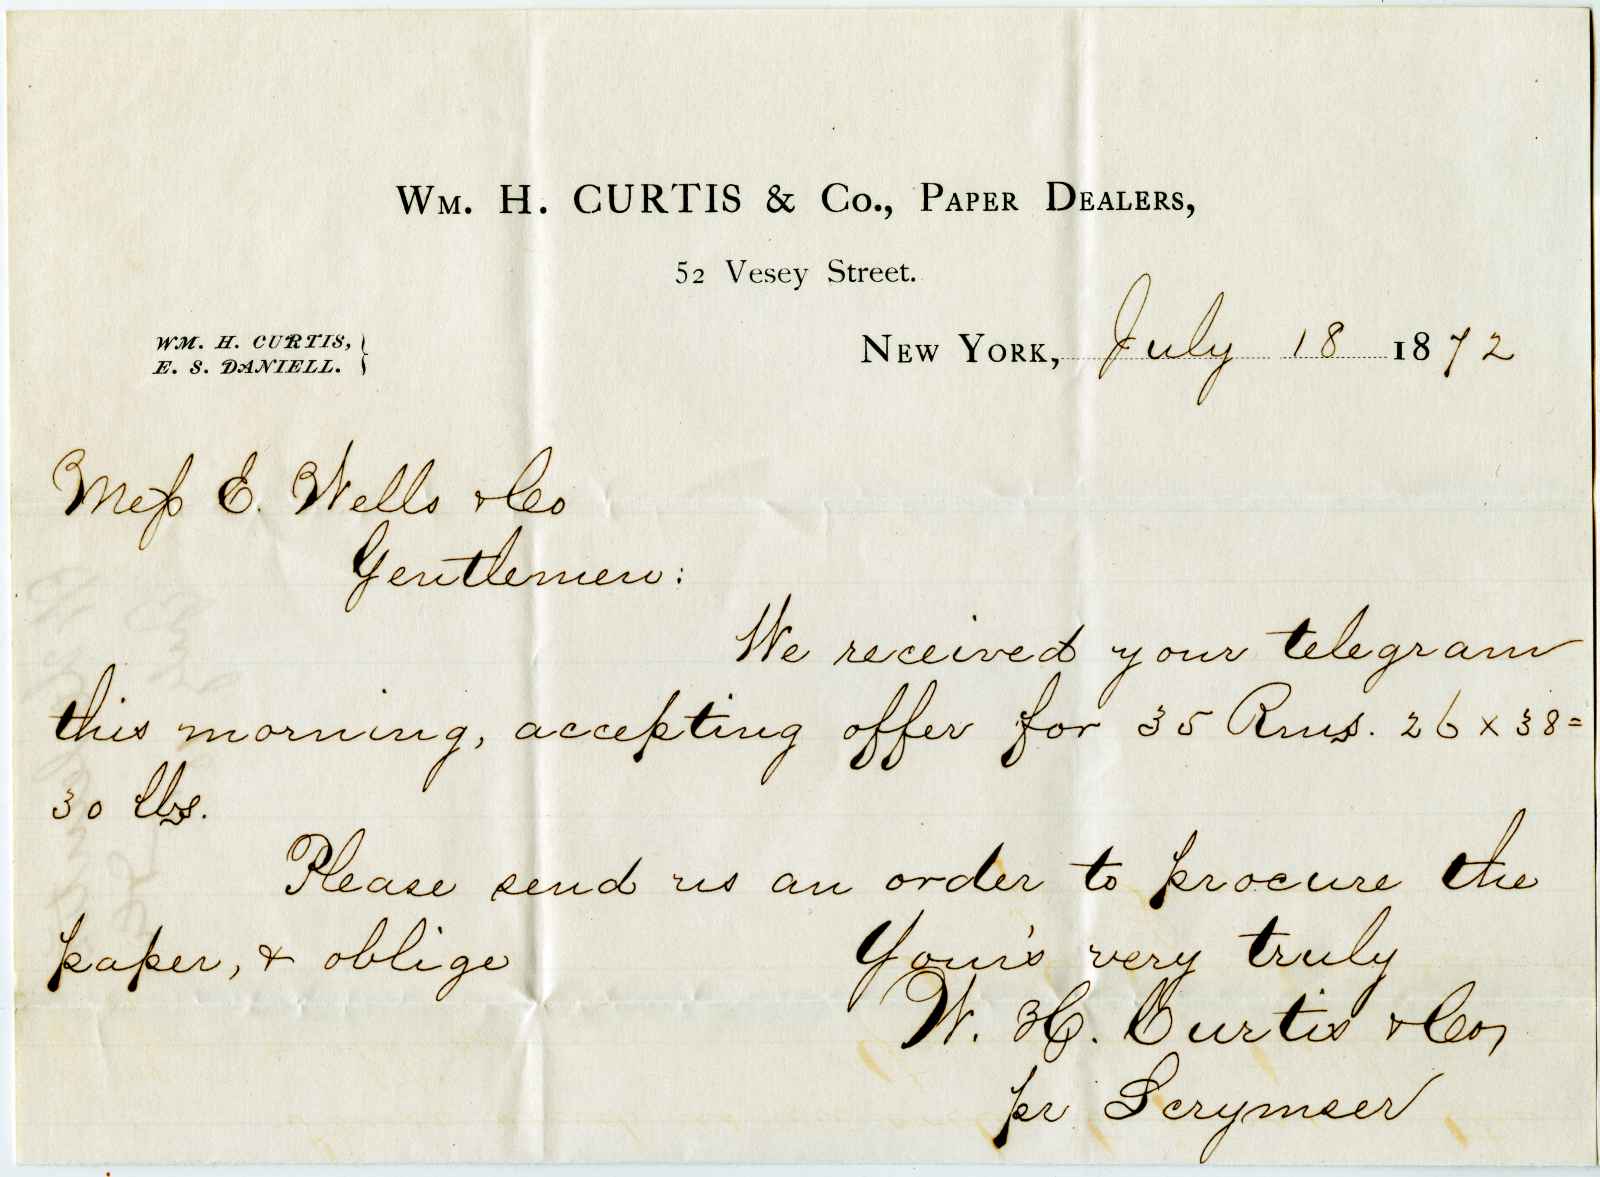 Wm. H. CURTIS & Co., Paper Dealers,
52 Vesey Street.
WM. H. CURTIS,
E. S. DANIELL.
New York, July 18 1872
Mess E. Wells & Co
Gentlemen:
We received your telegram
this morning, accepting offer for 35 Rms. 26 x 38=
30 lbs.
Please send us an order to procure the
paper, & oblige
Your's very truly
W. H. Curtis & Co,
pr Scrymser